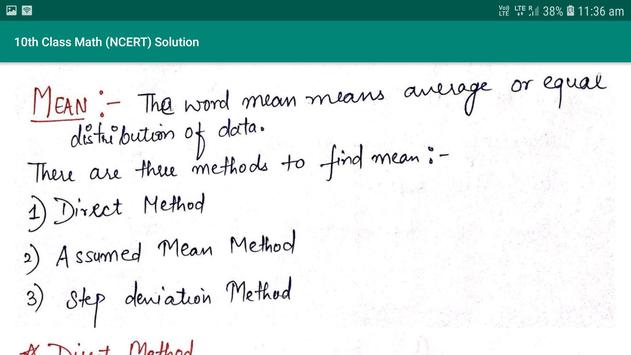 VoD LTE LTE R 38% 11:36 am
10th Class Math (NCERT) Solution
MEAN :- The word mean means average or equal
distribution of data.
There are three methods to find mean :-
1) Direct Method
2) Assumed Mean Method
3) Step deviation Method
* Direct Method